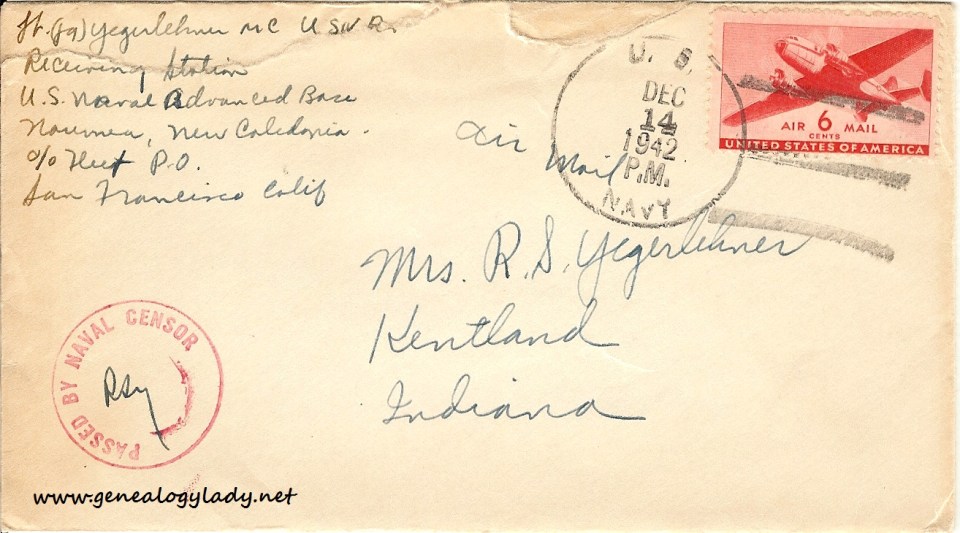 Lt. (jg) Yegerlehner MC USNR
Receiving Station
U.S. Naval Advanced Base
Noumea, New Caledonia.
c/o Fleet P.O.
San Francisco Calif
Air Mail
U. S.
DEC
14
1942
P.M.
NAVY
AIR 6 MAIL
CENTS
UNITED STATES OF AMERICA
Mrs. R. S. Yegerlehner
Kentland
Indiana
PASSED BY NAVAL CENSOR
RSY
www.genealogylady.net